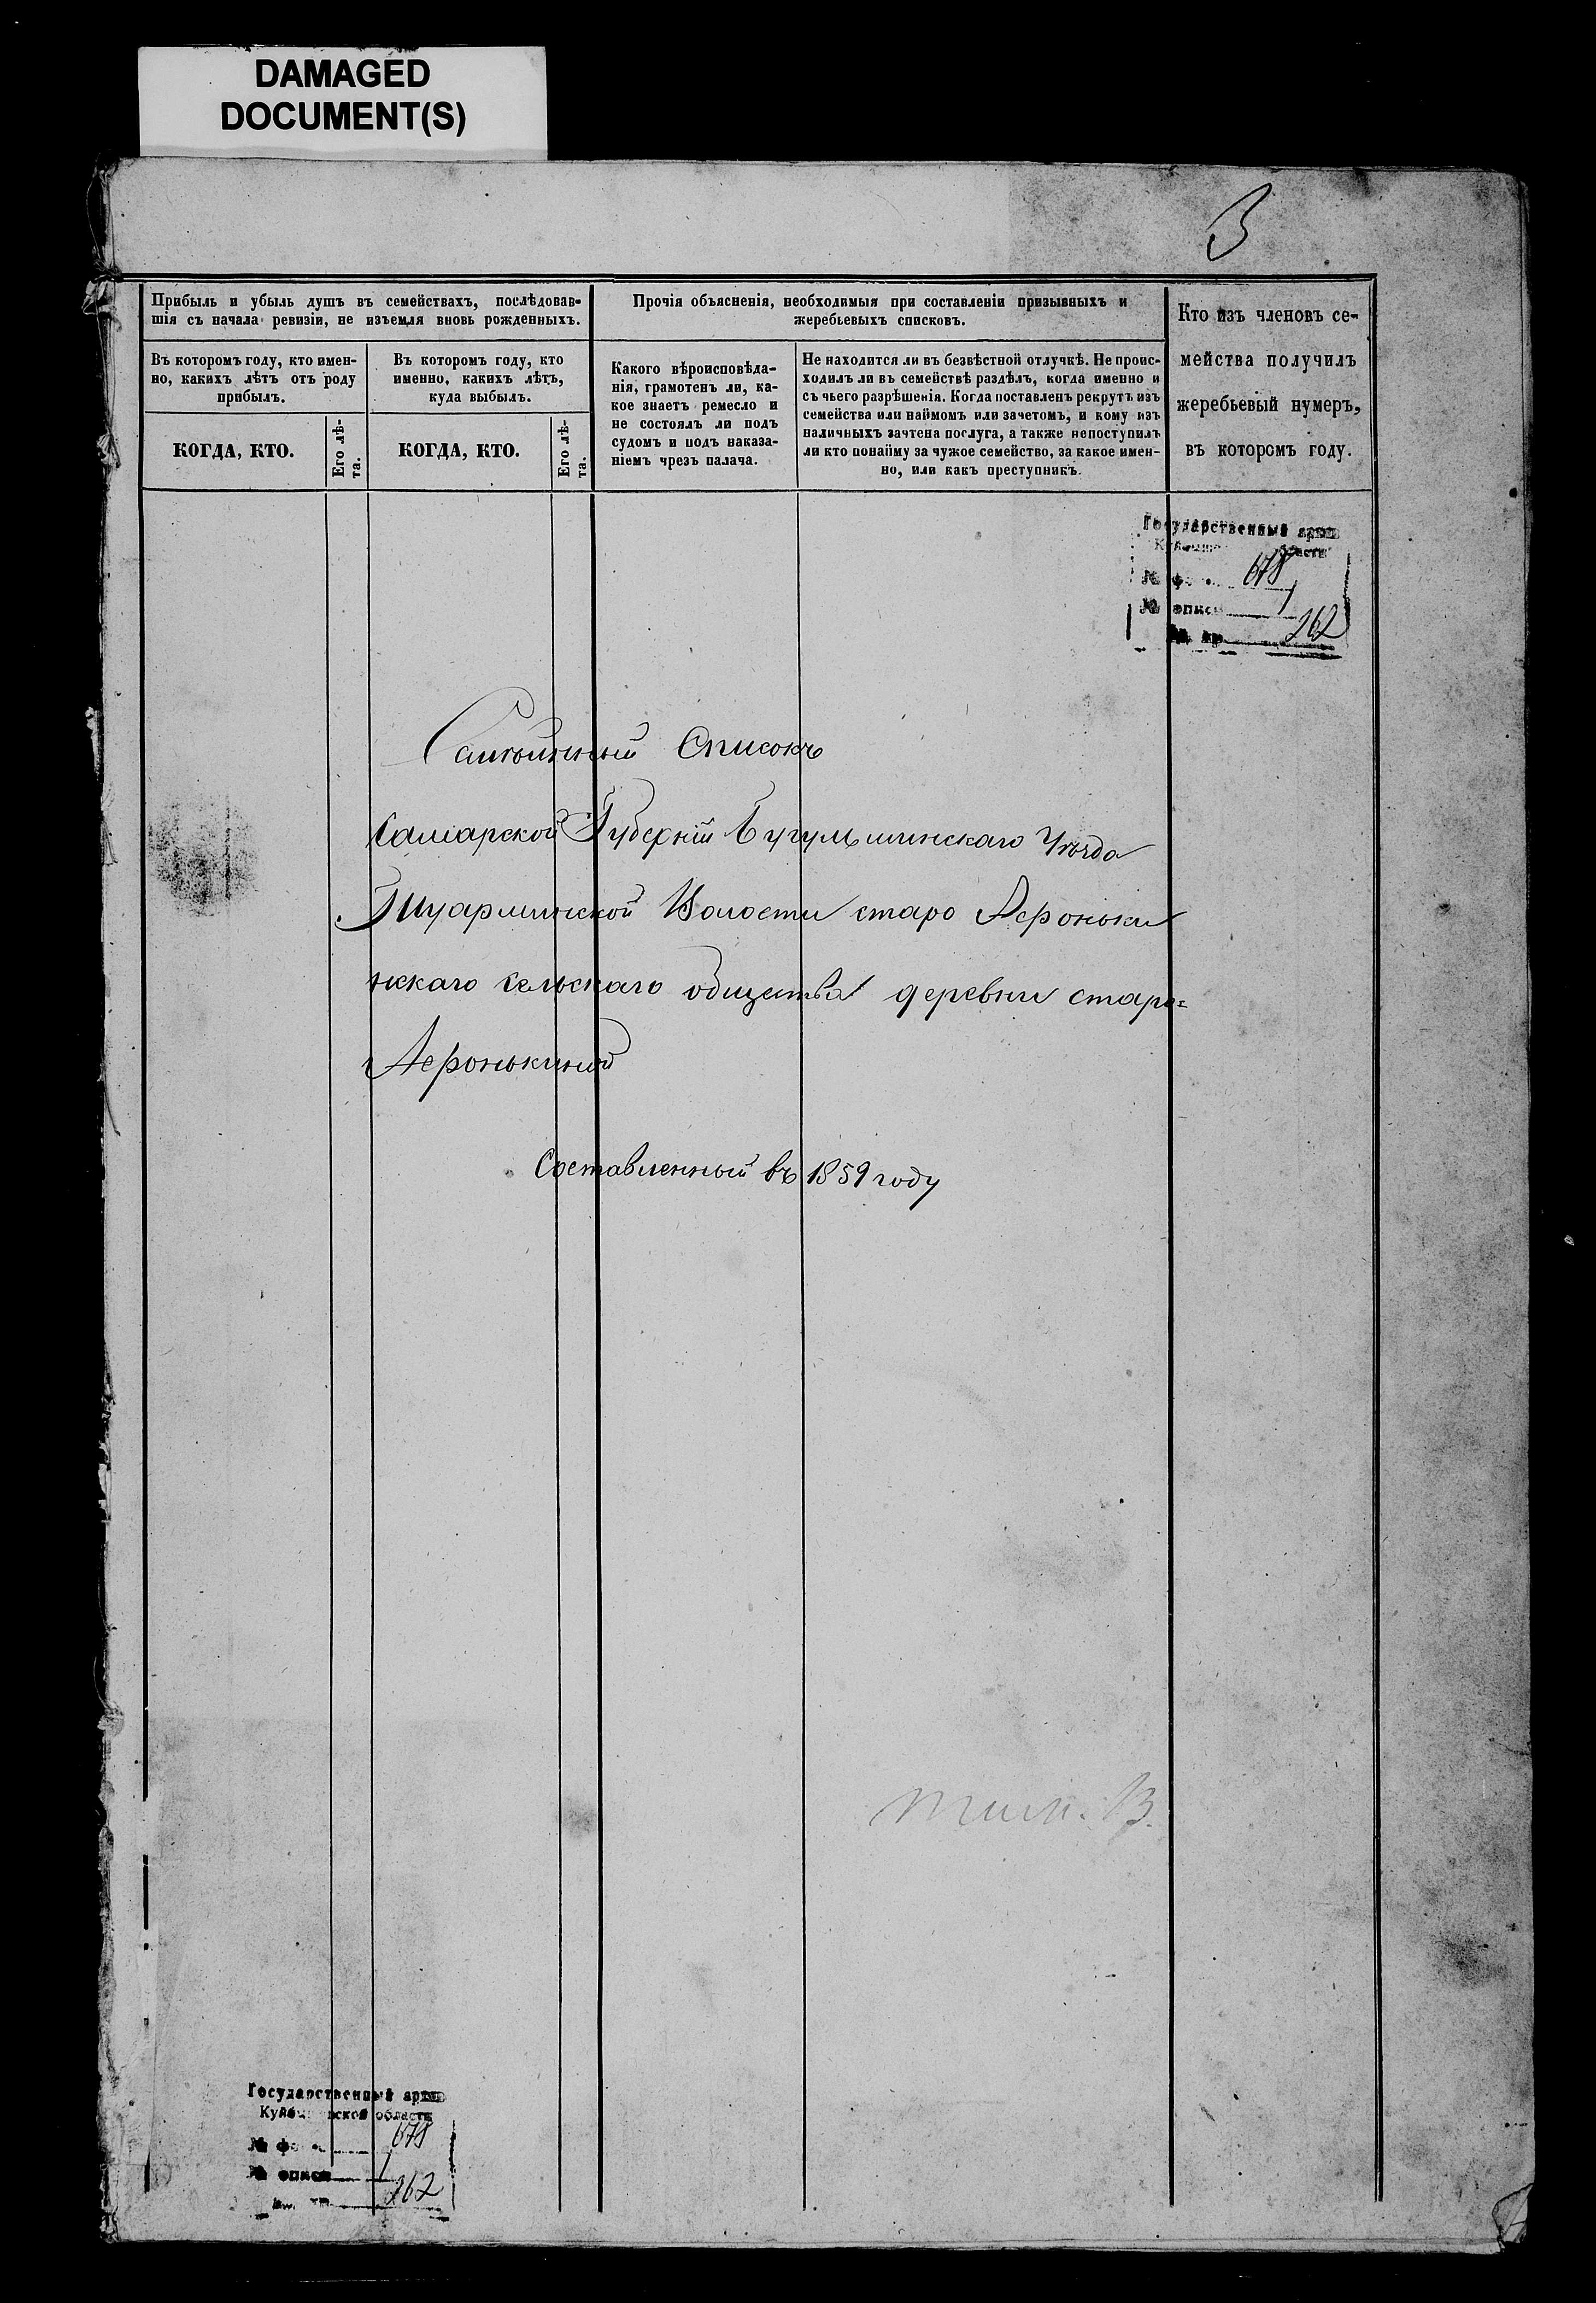 DAMAGED
DOCUMENT(S)
3
Прибыль и убыль душъ въ семействахъ, послѣдовав-
шія съ начала ревизіи, не изъемля вновь рожденныхъ.
Въ которомъ году, кто имен-
но, какихъ лѣтъ отъ роду
прибылъ.
КОГДА, КТО.
Его лѣ-
та.
Въ которомъ году, кто
именно, какихъ лѣтъ,
куда выбылъ.
КОГДА, КТО.
Его лѣ-
та.
Прочія объясненія, необходимыя при составленіи призывныхъ и
жеребьевыхъ списковъ.
Какого вѣроисповѣда-
нія, грамотенъ ли, ка-
кое знаетъ ремесло и
не состоялъ ли подъ
судомъ и подъ наказа-
ніемъ чрезъ палача.
Не находится ли въ безвѣстной отлучкѣ. Не проис-
ходилъ ли въ семействѣ раздѣлъ, когда именно и
съ чьего разрѣшенія. Когда поставленъ рекрутъ изъ
семейства или наймомъ или зачетомъ, и кому изъ
наличныхъ зачтена послуга, а также непоступилъ
ли кто понайму за чужое семейство, за какое имен-
но, или какъ преступникъ.
Кто изъ членовъ се-
мейства получилъ
жеребьевый нумеръ,
въ которомъ году.
Государственный архив
области
№ 678
№ описи 1
262
Списокъ
Самарской Губерніи Бугульминскаго Уѣзда
Волости старо Афоньки
нскаго сельскаго общества деревни старо=
Афонькиной
Составленный въ 1859 году
Государственный архив
Куйбышевской области
№ 678
№ описи 1
262